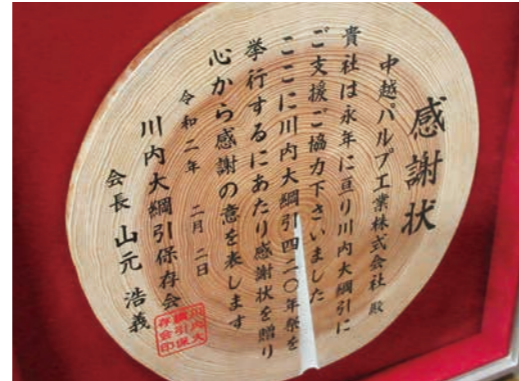 感謝状
中越パルプ工業株式会社 殿
貴社は永年に亘り川内大綱引に
ご支援ご協力下さいました
ここに川内大綱引四二〇年祭を
挙行するにあたり感謝状を贈り
心から感謝の意を表します
令和二年 二月 二日
川内大綱引保存会
会長 山元 浩義
川内大
綱引保
存会印